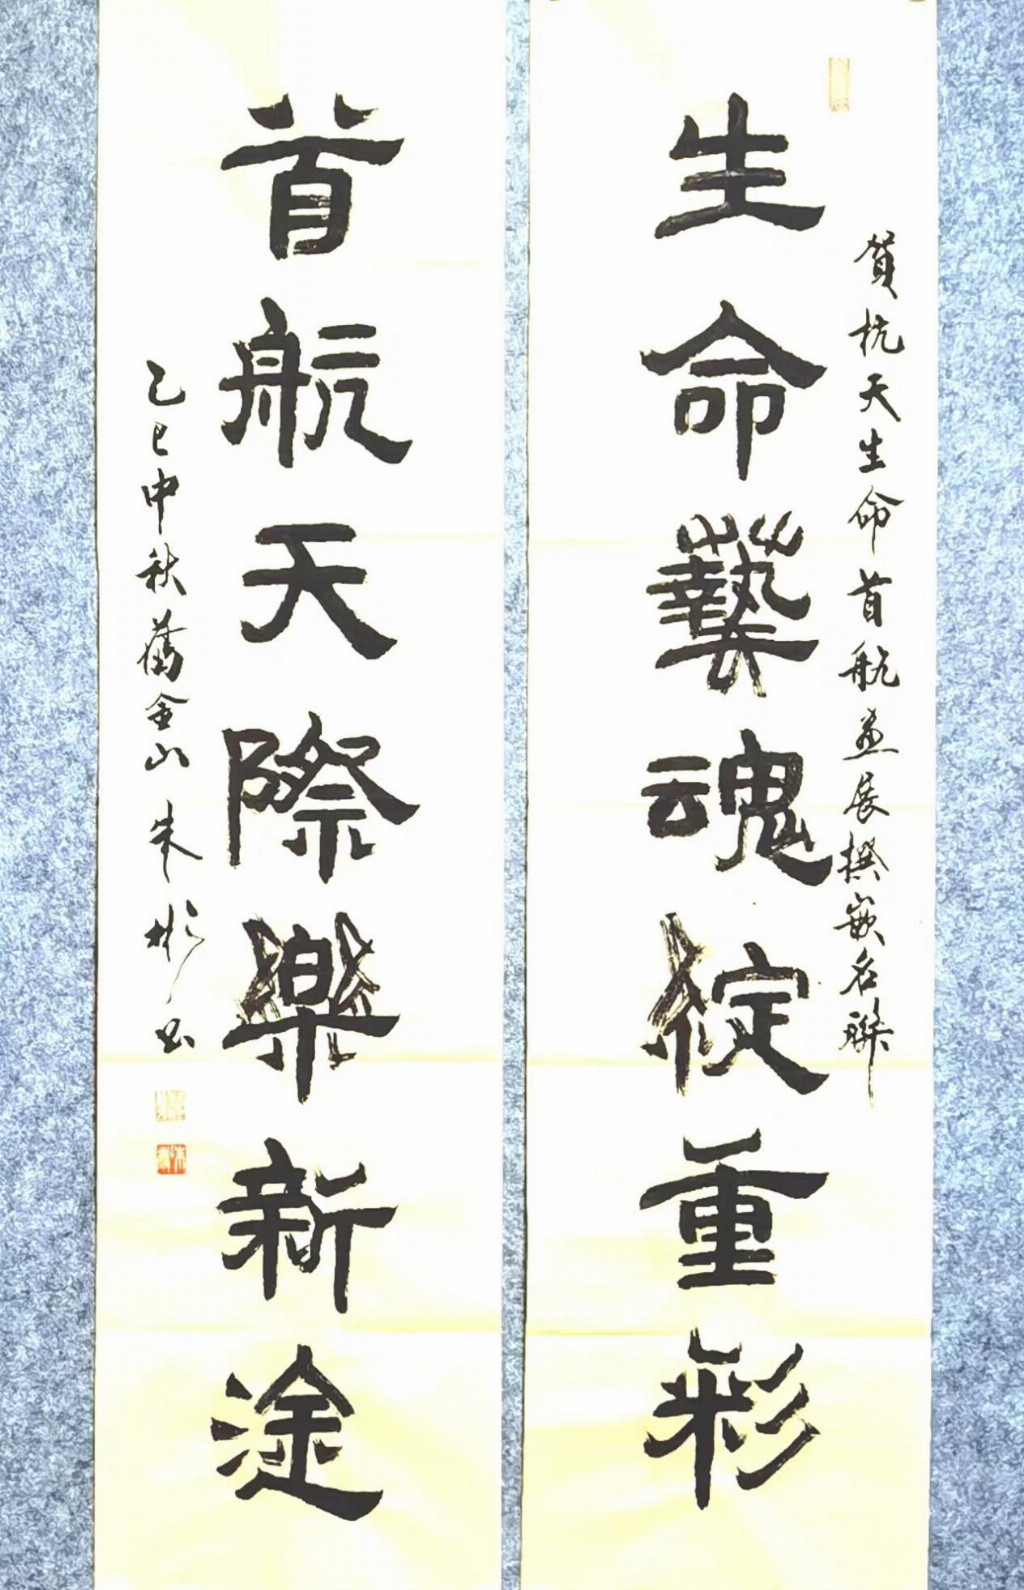 賀杭天生命首航画展撰嵌名聯
生命藝魂綻重彩
首航天際樂新途
乙巳中秋舊金山朱彬书